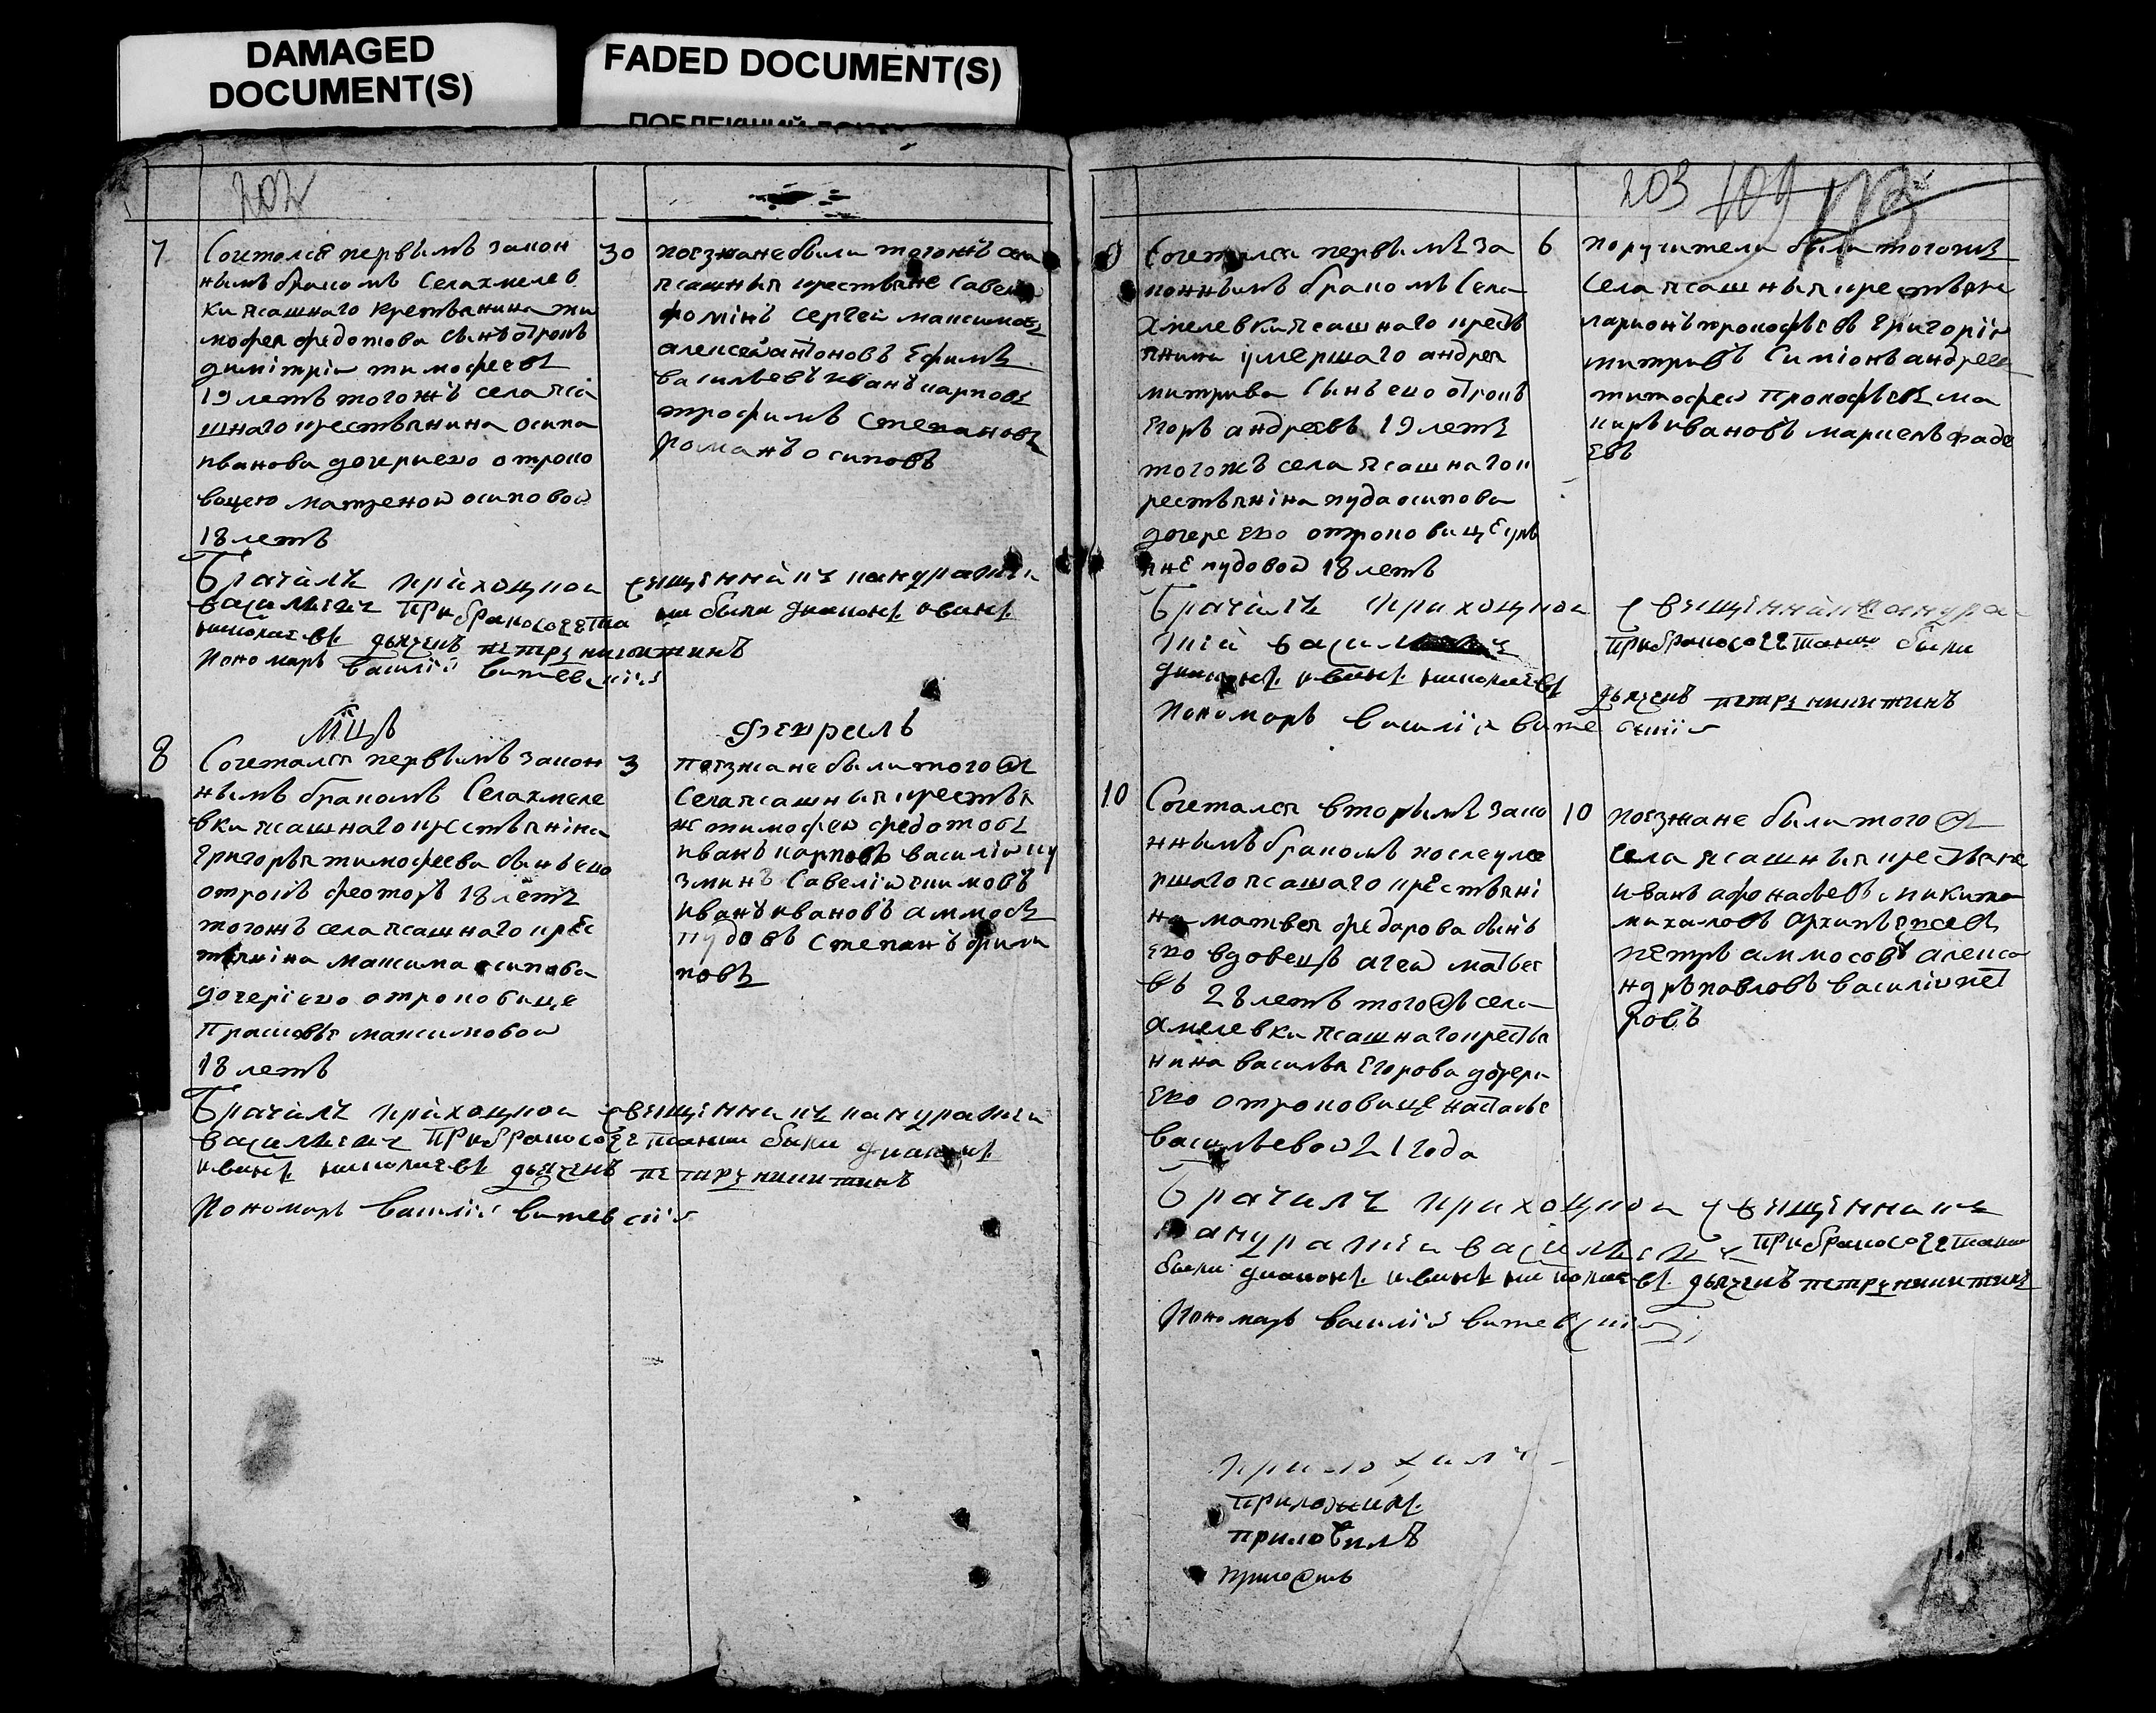 DAMAGED
DOCUMENT(S)
FADED DOCUMENT(S)
202
7
Сочетался первымъ закон
нымъ бракомъ Села хмелев
ки ясашнаго крестьянина ти
мофея федотова сынъ отрокъ
димітріи тимофеевъ
19 летъ тогожъ села яса
шнаго крестьянина осипа
иванова дочерью его отроко
вицею матреной осиповой
18 летъ
30
поезжане были тогожъ села
ясашныя крестьяне Савелей
фомінъ сергей максимовъ
алексей антоновъ Ефимъ
васильевъ иванъ карповъ
трофимъ Степановъ
романъ осиповъ
Брачилъ приходцкои священникъ кандратеи
василиевъ При бракосочетании были диаконъ иванъ
николаевъ дьячекъ петръ никитинъ
Пономарь василій витевскій
Мцъ февраль
8
Сочетался первымъ закон
нымъ бракомъ Села хмеле
вки ясашнаго крестьяніна
григорья тимофеева сынъ ево
отрокъ феоторъ 18 летъ
тогожъ села ясашнаго крес
тьяніна максима осипова
дочеріею отроковице
Прасковья максимовой
18 летъ
3
поезжане были того ж
Села ясашныя крестья
не тимофей федотовъ
иванъ карповъ василій ку
зминъ Савелій екимовъ
иванъ ивановъ аммосъ
пудовъ Степанъ фили
повъ
Брачилъ приходцкои священникъ кандратеи
василиевъ При бракосочетании были диаконъ
иванъ николаевъ дьячекъ петръ никитинъ
Пономарь василій витевскій
203 109
9
Сочетался первымъ за
коннымъ бракомъ Села
хмелевки ясашнаго кресть
янина умершаго андрея
митрива сынъ ево отрокъ
Егоръ андреевъ 19 летъ
тогожъ села ясашнаго к
рестьяніна пуда осипова
дочерь ево отроковице
пудовой 18 летъ
6
поручители были тогожъ
Села ясашныя крестьяне
ларионъ прокофьевъ григоріи
митривъ Симіонъ андреевъ
тимофей Прокофьевъ ма
каръ ивановъ маркелъ фаде
евъ
Брачилъ приходцкои священникъ кандра
тій васил
При бракосочетании были
диаконъ иванъ николаевъ дьячекъ петръ никитинъ
Пономарь василій витевскій
10
Сочетался вторымъ зако
ннымъ бракомъ после уме
ршаго ясашаго крестьяні
на матвея федарова сынъ
ево вдовецъ агей матвее
въ 28 летъ того жъ села
хмелевки ясашнаго крестья
нина василья Егорова дочерь
ево отроковице настасье
васильевой 21 года
10
поезжане были того ж
села ясашныя крестьяне
иванъ афонасьевъ никита
михаловъ архипъ
петръ аммосовъ алекса
ндръ павловъ василій пет
ровъ
Брачилъ приходцкои священникъ
кандратіи василиевъ При бракосочетании
были диаконъ иванъ николаевъ дьячекъ петръ никитинъ
Пономарь василій витевскій
приложилъ
приложилъ
приложилъ